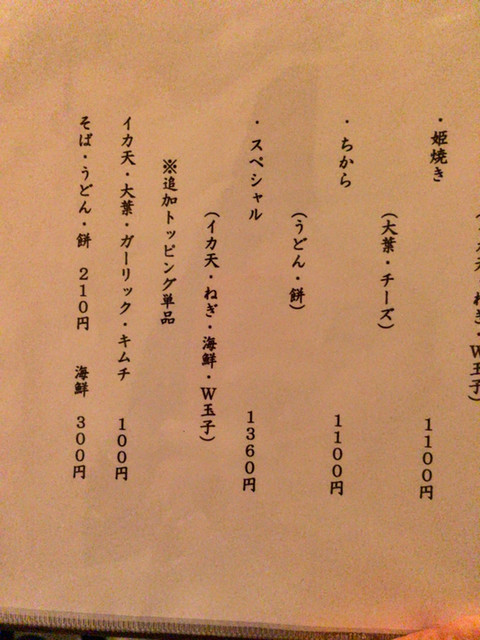 (イカ天・ねぎ・W玉子)
・姫焼き 1100円
(大葉・チーズ)
・ちから 1100円
(うどん・餅)
・スペシャル 1360円
(イカ天・ねぎ・海鮮・W玉子)
※追加トッピング単品
イカ天・大葉・ガーリック・キムチ 100円
そば・うどん・餅 210円 海鮮 300円